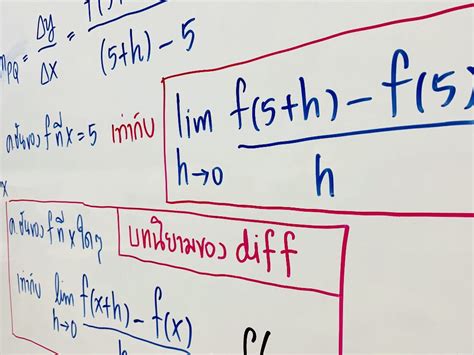 m_PQ = Δy/Δx = f(5+h) / (5+h) - 5
ค.ชันของ f ที่ x = 5 เท่ากับ lim h→0 f(5+h) - f(5) / h
ค.ชันของ f ที่ x ใดๆ บทนิยามของ diff
เท่ากับ lim h→0 f(x+h) - f(x) / h